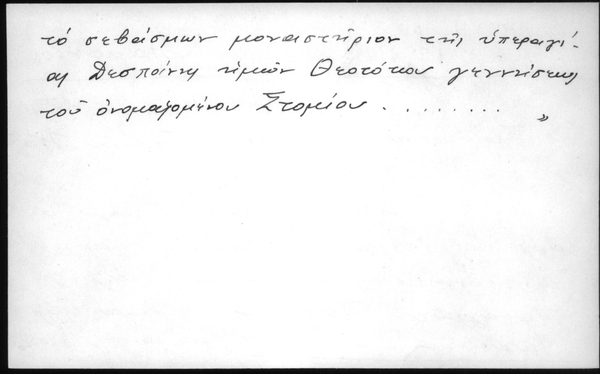 τό σεβάσμιων μοναστήριον τῆς ὑπεραγί-
ας Δεσποίνης ἡμῶν Θεοτόκου γεννήσεως
τοῦ ὀνομαζομένου Στομίου . . . . . . . . »